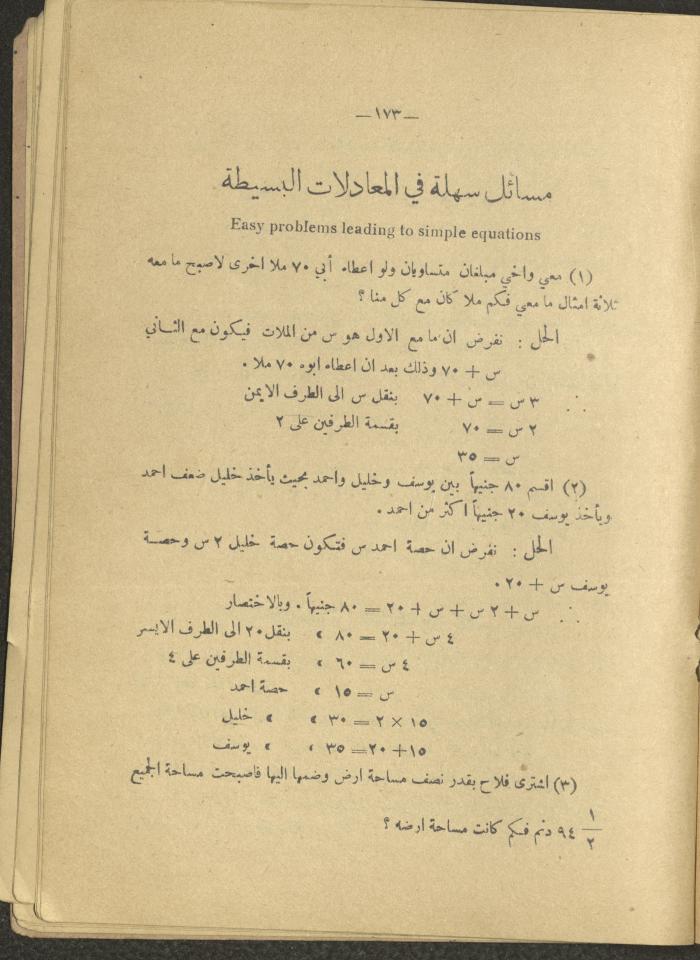 — ١٧٣ —
مسائل سهلة في المعادلات البسيطة
Easy problems leading to simple equations
(١) معي واخي مبلغان متساويان ولو اعطاه أبي ٧٠ ملا اخرى لاصبح ما معه
ثلاثة امثال ما معي فكم ملا كان مع كل منا ؟
الحل : نفرض ان ما مع الاول هو س من الملات فيكون مع الثاني
س + ٧٠ وذلك بعد ان اعطاه ابوه ٧٠ ملا .
∴ ٣ س = س + ٧٠ بنقل س الى الطرف الايمن
٢ س = ٧٠ بقسمة الطرفين على ٢
س = ٣٥
(٢) اقسم ٨٠ جنيهاً بين يوسف وخليل واحمد بحيث يأخذ خليل ضعف احمد
ويأخذ يوسف ٢٠ جنيهاً اكثر من احمد .
الحل : نفرض ان حصة احمد س فتكون حصة خليل ٢ س وحصة
يوسف س + ٢٠ .
∴ س + ٢ س + س + ٢٠ = ٨٠ جنيهاً . وبالاختصار
٤ س + ٢٠ = ٨٠ ، بنقل ٢٠ الى الطرف الايسر
٤ س = ٦٠ ، بقسمة الطرفين على ٤
س = ١٥ ، حصة احمد
١٥ × ٢ = ٣٠ ، ، خليل
١٥ + ٢٠ = ٣٥ ، ، يوسف
(٣) اشترى فلاح بقدر نصف مساحة ارض وضمها اليها فاصبحت مساحة الجميع
١/٢ ٩٤ دنم فكم كانت مساحة ارضه ؟